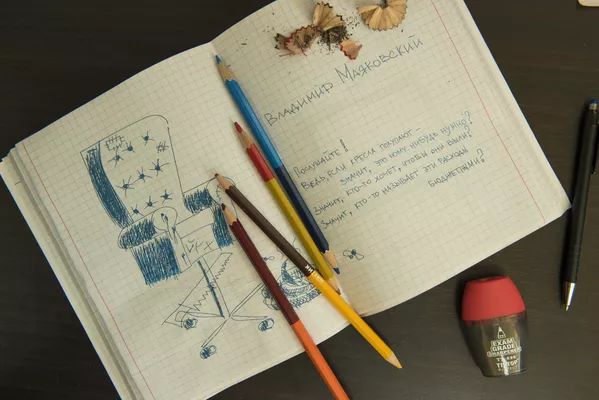 Владимир Маяковский
Послушайте!
Ведь, если кресла покупают –
значит, это кому-нибудь нужно?
Значит, кто-то хочет, чтобы они были?
Значит, кто-то называет эти расходы
бюджетными?
EXAM
GRADE
SHARPENER